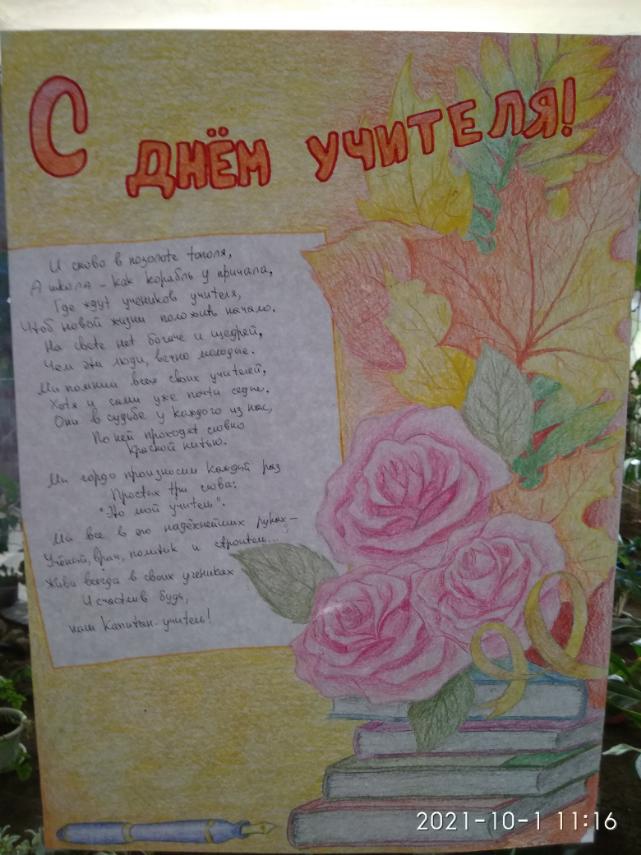 С ДНЁМ УЧИТЕЛЯ!
И снова в позолоте тополя,
А школа - как корабль у причала,
Где ждут учеников учителя,
Чтоб новой жизни положить начало.
На свете нет богаче и щедрей,
Чем эти люди, вечно молодые.
Мы помним всех своих учителей,
Хотя и сами уже почти седые.
Они в судьбе у каждого из нас,
По ней проходят словно
красной нитью.
Мы гордо произносим каждый раз
Простых три слова:
"Это мой учитель".
Мы все в его надёжнейших руках -
Учёный, врач, политик и строитель...
Живи всегда в своих учениках
И счастлив будь,
наш Капитан-учитель!
2021-10-1 11:16